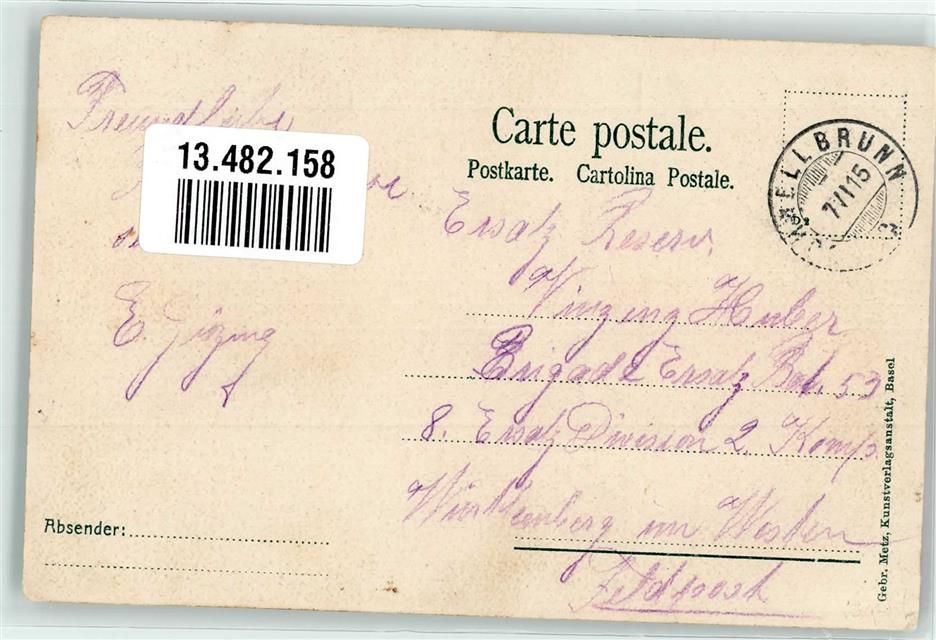 Freundliche
13.482.158
E. Gizing
Absender:
Carte postale.
Postkarte. Cartolina Postale.
ELLBRUNN
7VI15
Ersatz Reserv.
Vinzing Huber
Brigade Ersatz Bat. 53
8. Ersatz Division 2. Komp.
Württemberg im Westen
Feldpost
Gebr. Metz, Kunstverlagsanstalt, Basel